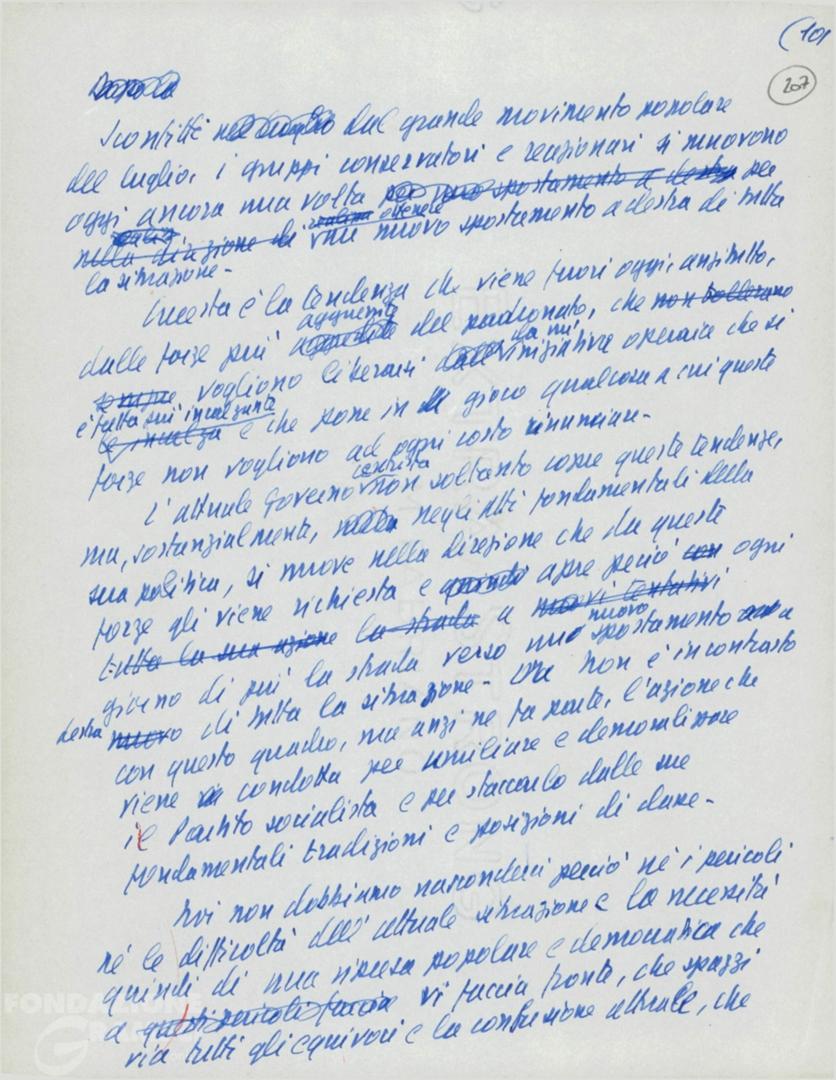 (10)
207
Sconfitti dal grande movimento popolare
del luglio, i gruppi conservatori e reazionari si muovono
oggi ancora una volta per uno spostamento a destra per
nella direzione di ottenere
un nuovo spostamento a destra di tutta
la situazione.-
Questa è la tendenza che viene fuori oggi, anzitutto,
dalle forze più agguerrite del padronato, che non tollerano
vogliono liberarsi da un'iniziativa operaia che si
è fatta più incalzante
e che pone in gioco qualcosa a cui queste
forze non vogliono ad ogni costo rinunciare.-
L'attuale Governo centrista non soltanto copre queste tendenze,
ma, sostanzialmente, negli atti fondamentali della
sua politica, si muove nella direzione che da queste
forze gli viene richiesta e apre perciò ogni
tutta la sua azione la strada a nuovi tentativi
giorno di più la strada verso un nuovo spostamento a
destra di tutta la situazione.- Ora non è in contrasto
con questo quadro, ma anzi ne fa parte, l'azione che
viene condotta per umiliare e demoralizzare
il Partito socialista e per staccarlo dalle sue
fondamentali tradizioni e posizioni di classe.-
Noi non dobbiamo nasconderci perciò né i pericoli
né le difficoltà dell'attuale situazione e la necessità
quindi di una ripresa popolare e democratica che
a questi pericoli faccia vi faccia fronte, che spazzi
via tutti gli equivoci e la confusione attuale, che
FONDAZIONE
GRAMSCI